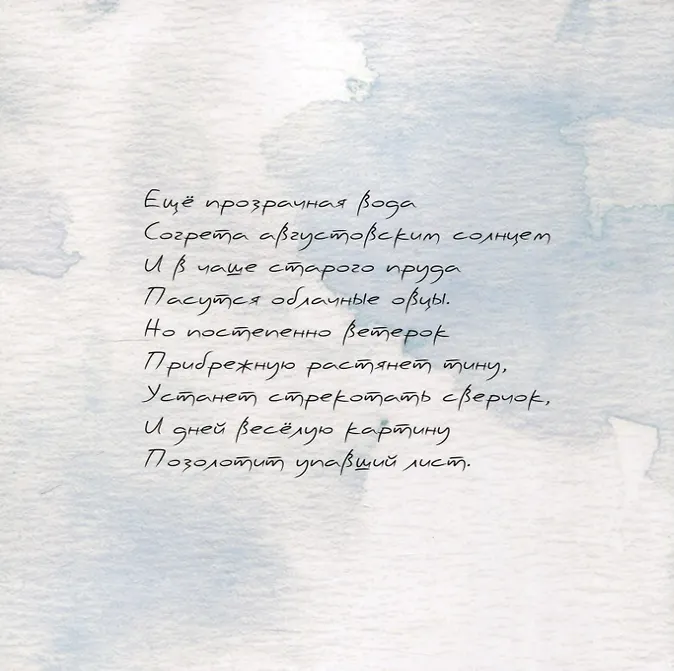 Ещё прозрачная вода
Согрета августовским солнцем
И в чаше старого пруда
Пасутся облачные овцы.
Но постепенно ветерок
Прибрежную растянет тину,
Устанет стрекотать сверчок,
И дней весёлую картину
Позолотит упавший лист.